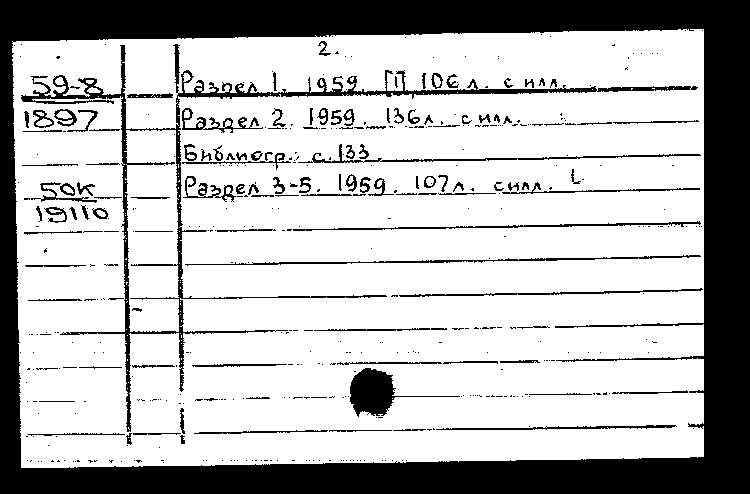 2.
59-8 Раздел 1. 1959. [1] 106 л. с илл.
1897 Раздел 2. 1959. 136л. с илл.
Библиогр.: с. 133.
50к Раздел 3-5. 1959. 107л. с илл.
19110